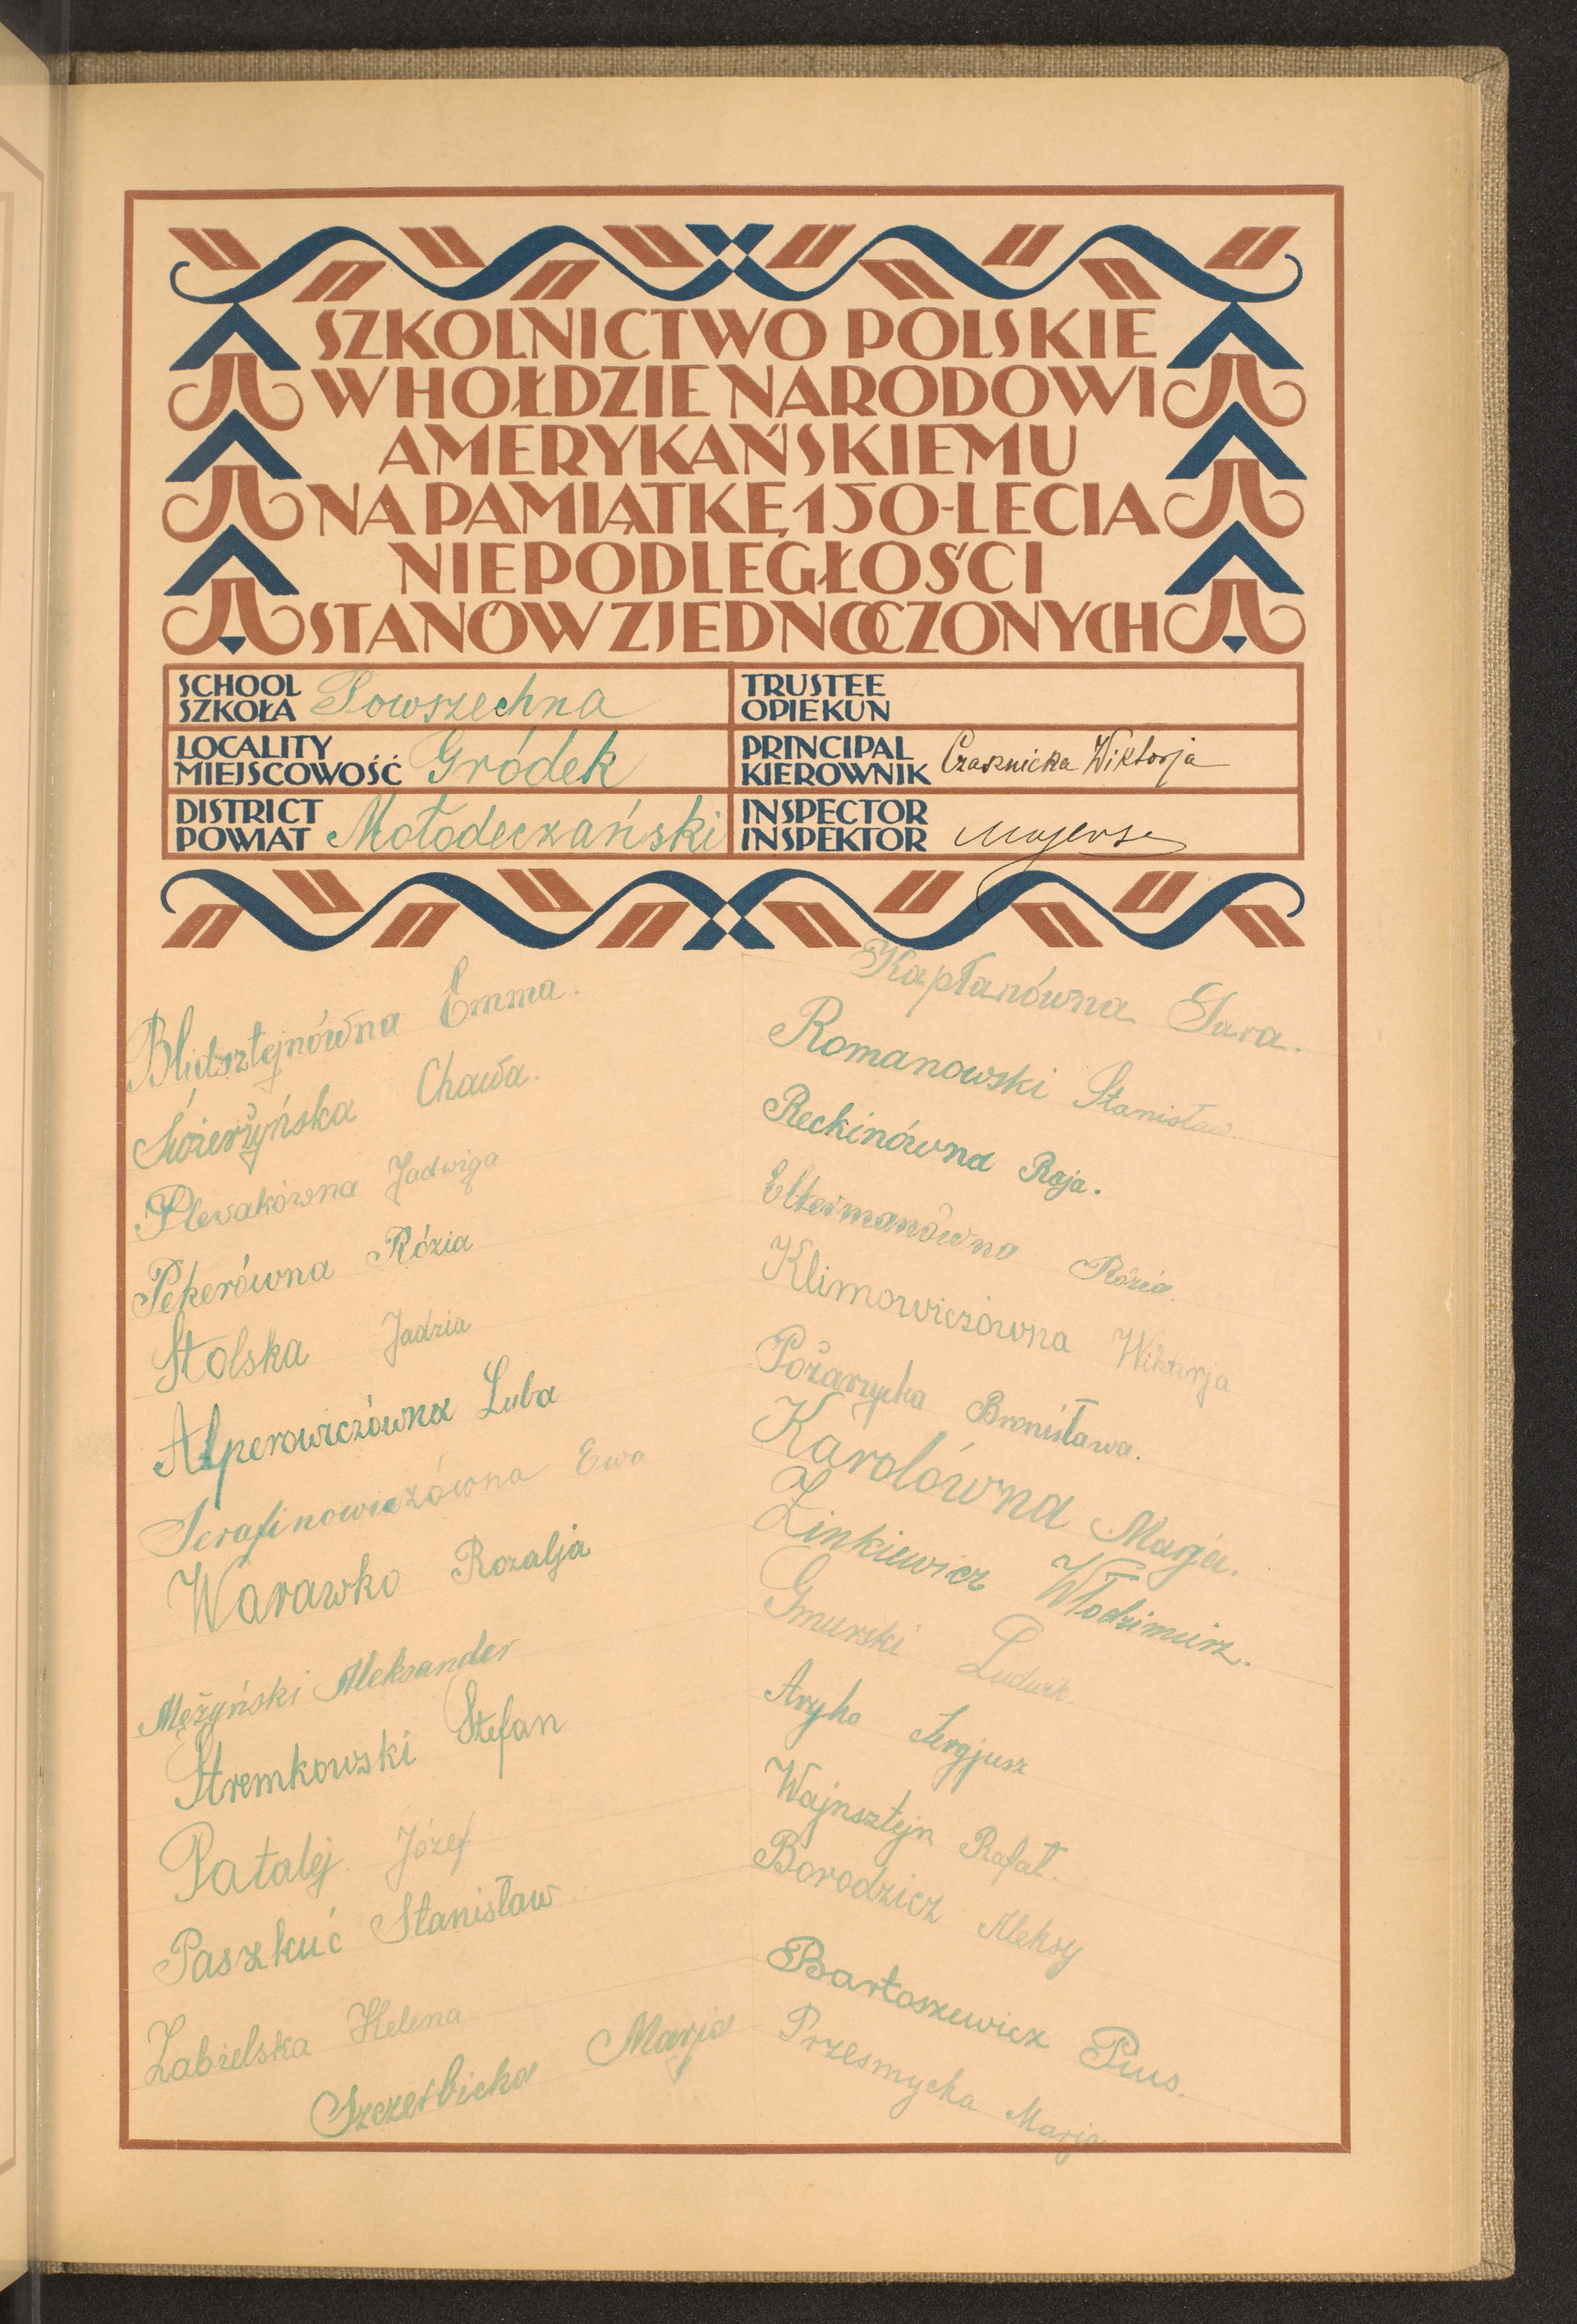 SZKOLNICTWO POLSKIE
W HOŁDZIE NARODOWI
AMERYKAŃSKIEMU
NA PAMIĄTKĘ 150-LECIA
NIEPODLEGŁOŚCI
STANÓW ZJEDNOCZONYCH
SCHOOL
SZKOŁA Powszechna
TRUSTEE
OPIEKUN
LOCALITY
MIEJSCOWOŚĆ Gródek
PRINCIPAL
KIEROWNIK Czasznicka Wiktorja
DISTRICT
POWIAT Mołodeczański
INSPECTOR
INSPEKTOR
Blidsztejnówna Emma.
Świerzyńska Chawa.
Plewakówna Jadwiga
Pekerówna Rózia
Stolska Jadzia
Alperowiczówna Luba
Serafinowiczówna Ewa
Warawko Rozalja
Mężyński Aleksander
Stremkowski Stefan
Patalej Józef
Paszkuć Stanisław
Zabielska Helena
Szczerbicka Marja
Kapłanówna Sara.
Romanowski Stanisław.
Reckinówna Raja.
Eltermanówna Rózia
Klimowiczówna Wiktorja
Pożarzycka Bronisława.
Karolówna Marja.
Zinkiewicz Włodzimierz.
Gmurski Ludwik
Aryko Sergjusz
Wajnsztejn Rafał.
Borodzicz Aleksy
Bartoszewicz Pius.
Przesmycka Marja